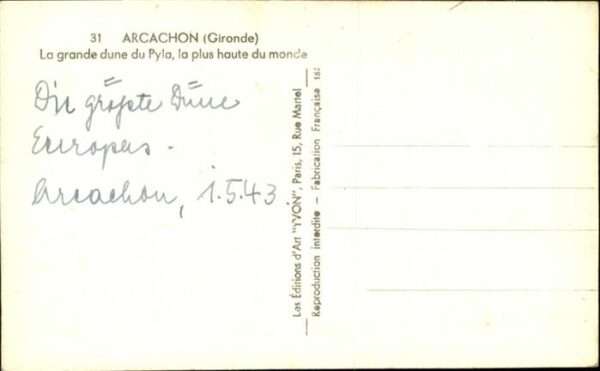 31 ARCACHON (Gironde)
La grande dune du Pyla, la plus haute du monde
Die größte Düne
Europas.
Arcachon, 1.5.43
Les Éditions d'Art "YVON", Paris, 15, Rue Martel
Reproduction interdite — Fabrication Française